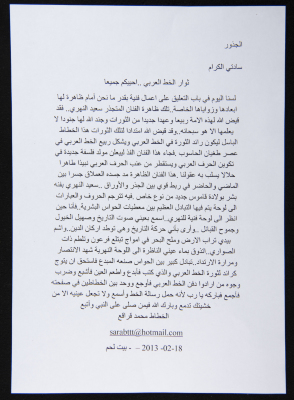 الجذور
سادتي الكرام
ثوار الخط العربي ..احييكم جميعا
لسنا اليوم في باب التعليق على اعمال فنية بقدر ما نحن أمام ظاهرة لها
ابعادها وزواياها الخاصة.تلك ظاهرة الفنان المتجذر سعيد النهري.. فقد
قيض الله لهذه الامة ربيعا وعهدا جديدا من الثورات وجند الله لها جنودا لا
يعلمها الا هو سبحانه..وقد قيض الله استدادا لتلك الثورات هذا الخطاط
الباسل ليكون رائد الثورة في الخط العربي ويشكل ربيع الخط العربي في
عصر طغيان الحاسوب .فجاء هذا الفنان الفذ ليعلن مولد فلسفة جديدة في
تكوين الحرف العربي ويستقطر من عذب الحرف العربي نبيذا طاهرا
حلالا يسلب به عقولنا .هذا الفنان الظاهرة مد جسده العملاق جسرا بين
الماضي والحاضر في ربط قوي بين الجذر والأوراق ..سعيد النهري بفنه
بشر بولادة قاموس جديد من نوع خاص .فيه تترجم الحروف والعبارات
الى لوحة يتم فيها التبادل العظيم بين معطيات الحواس البشرية..فأنا حين
انظر الى لوحة فنية للنهري..اسمع بعيني صوت التاريخ وصهيل الخيول
وجموح القبائل ..وأرى بأني حركة التاريخ وهي توطد اركان الدين..واشم
بيدي تراب الارض وملح البحر في امواج تبتلع فرعون وتلطم ذات
الصواري..اتذوق بماء عيني الناظرة الى اللوحة النهرية شهد الانتصار
ومرارة الارتداد..تبادل كبير بين الحواس صنعه المبدع فاستحق ان يتوج
كرائد لثورة الخط العربي والذي كتب فأبدع واطعم العين فأشبع وضرب
وجوه من ارادوا دفن الخط العربي فأوجع ووحد بين الخطاطين في صفحته
فأجمع فباركه يا رب لأنه حمل رسالة الخط وأسمع ولا تجعل عينيه الا من
خشيتك تدمع وبارك الله فيمن صلى على النبي وأتبع
الخطاط محمد قراقع
sarabttt@hotmail.com
2013 -02-18 - - بيت لحم